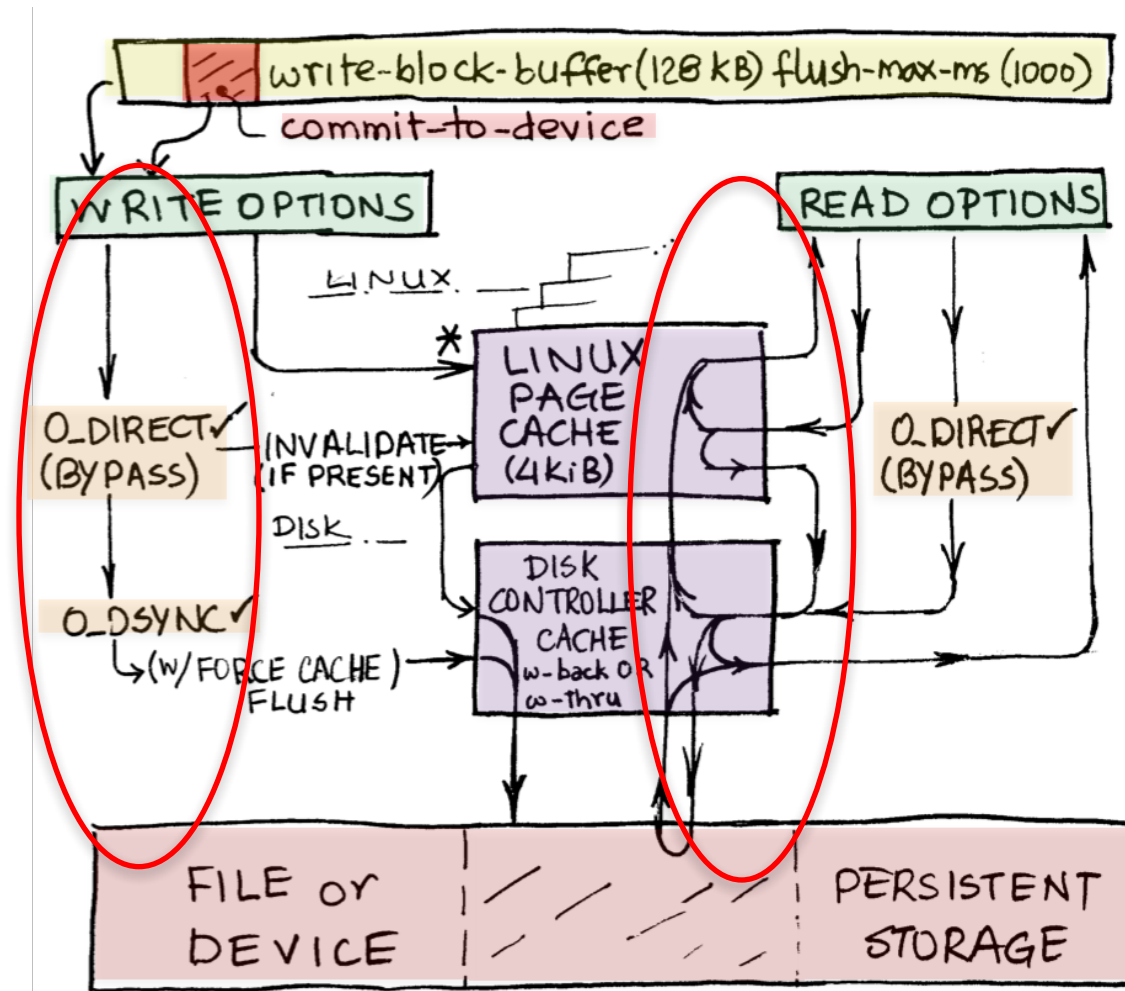 write-block-buffer(128 kB) flush-max-ms (1000)
commit-to-device
WRITE OPTIONS
READ OPTIONS
LINUX
*
LINUX
PAGE
CACHE
(4KiB)
O_DIRECT✓
(BYPASS)
INVALIDATE
(IF PRESENT)
O_DIRECT✓
(BYPASS)
DISK
DISK
CONTROLLER
CACHE
w-back OR
w-thru
O_DSYNC✓
(W/FORCE CACHE)
FLUSH
FILE or
DEVICE
PERSISTENT
STORAGE